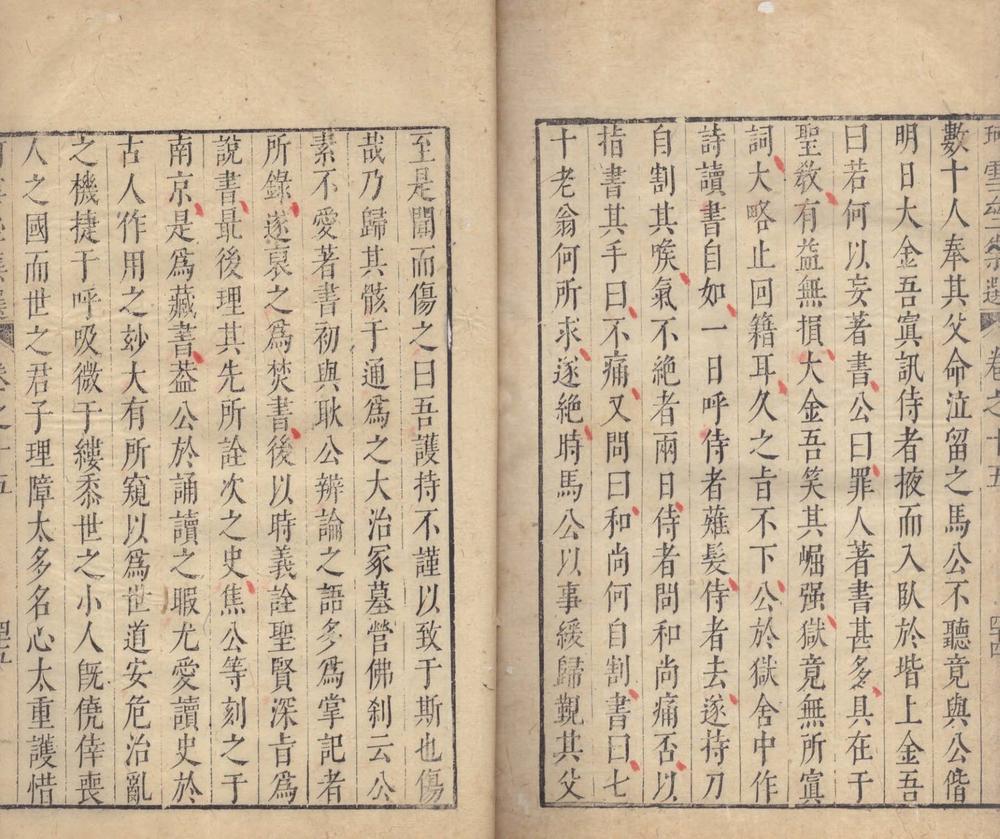 珂雪齋集選 卷之十五 四十四
數十人奉其父命泣留之馬公不聽竟與公偕
明日大金吾寘訊侍者掖而入臥於堦上金吾
曰若何以妄著書公曰罪人著書甚多具在于
聖教有益無損大金吾笑其崛强獄竟無所寘
詞大略止回籍耳久之旨不下公於獄舍中作
詩讀書自如一日呼侍者薙髮侍者去遂持刀
自割其喉氣不絶者兩日侍者問和尚痛否以
指書其手曰不痛又問曰和尚何自割書曰七
十老翁何所求遂絶時馬公以事緩歸覲其父
至是聞而傷之曰吾護持不謹以致于斯也傷
哉乃歸其骸于通爲之大治冢墓營佛刹云公
素不愛著書初與耿公辨論之語多爲掌記者
所錄遂裒之爲焚書後以時義詮聖賢深旨爲
說書最後理其先所詮次之史焦公等刻之于
南京是爲藏書葢公於誦讀之暇尤愛讀史於
古人作用之玅大有所窺以爲世道安危治亂
之機捷于呼吸微于縷黍世之小人旣僥倖喪
人之國而世之君子理障太多名心太重護惜
卷之十五